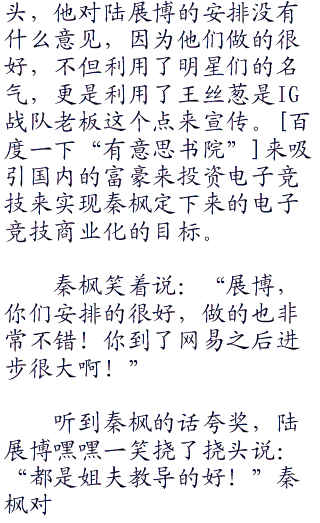 头，他对陆展博的安排没有
什么意见，因为他们做的很
好，不但利用了明星们的名
气，更是利用了王丝葱是IG
战队老板这个点来宣传。[百
度一下“有意思书院”]来吸
引国内的富豪来投资电子竞
技来实现秦枫定下来的电子
竞技商业化的目标。
秦枫笑着说：“展博，
你们安排的很好，做的也非
常不错！你到了网易之后进
步很大啊！”
听到秦枫的话夸奖，陆
展博嘿嘿一笑挠了挠头说：
“都是姐夫教导的好！”秦
枫对